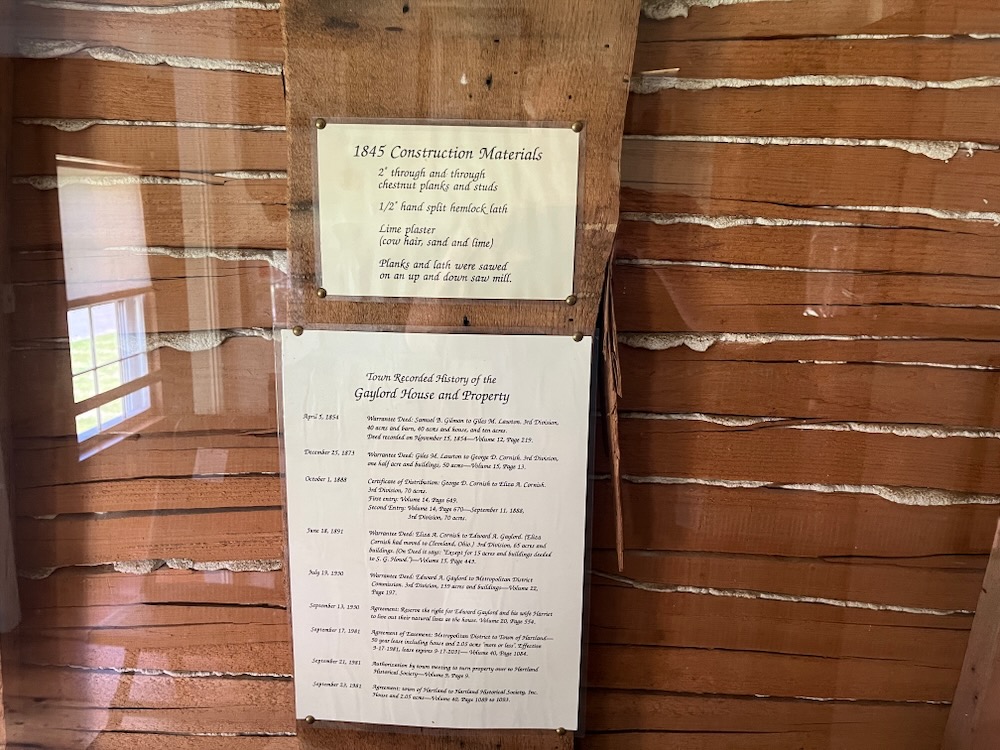 1845 Construction Materials
2" through and through
chestnut planks and studs
1/2" hand split hemlock lath
Lime plaster
(cow hair, sand and lime)
Planks and lath were sawed
on an up and down saw mill.
Town Recorded History of the
Gaylord House and Property
April 5, 1854 Warrantee Deed: Samuel B. Gilman to Giles M. Lawton. 3rd Division,
40 acres and barn, 40 acres and house, and ten acres.
Deed recorded on November 15, 1854—Volume 12, Page 219.
December 25, 1873 Warrantee Deed: Giles M. Lawton to George D. Cornish. 3rd Division,
one half acre and buildings, 50 acres—Volume 15, Page 13.
October 1, 1888 Certificate of Distribution: George D. Cornish to Eliza A. Cornish.
3rd Division, 70 acres.
First entry: Volume 14, Page 649.
Second Entry: Volume 14, Page 670—September 11, 1888.
3rd Division, 70 acres.
June 18, 1891 Warrantee Deed: Eliza A. Cornish to Edward A. Gaylord. (Eliza
Cornish had moved to Cleveland, Ohio.) 3rd Division, 65 acres and
buildings. (On Deed it says: "Except for 15 acres and buildings deeded
to S. G. Howd.")—Volume 15, Page 443.
July 19, 1930 Warrantee Deed: Edward A. Gaylord to Metropolitan District
Commission. 3rd Division, 159 acres and buildings—Volume 22,
Page 197.
September 13, 1930 Agreement: Reserve the right for Edward Gaylord and his wife Harriet
to live out their natural lives at the house. Volume 20, Page 554.
September 17, 1981 Agreement of Easement: Metropolitan District to Town of Hartland—
50 year lease including house and 2.05 acres "more or less". Effective
9-17-1981, lease expires 9-17-2031— Volume 40, Page 1084.
September 21, 1981 Authorization by town meeting to turn property over to Hartland
Historical Society—Volume 9, Page 9.
September 23, 1981 Agreement: town of Hartland to Hartland Historical Society, Inc.
House and 2.05 acres—Volume 40, Page 1089 to 1093.